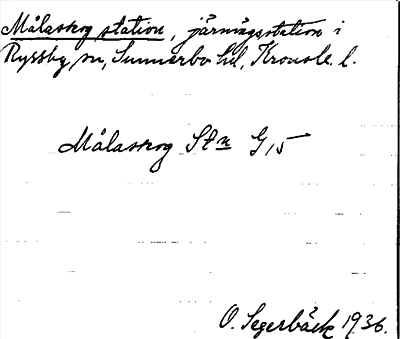 Målaskog station, järnvägsstation i
Ryssby sn, Sunnerbo hd, Kronob. l.
Målaskog Stn G 15
O. Segerbäck 1936.